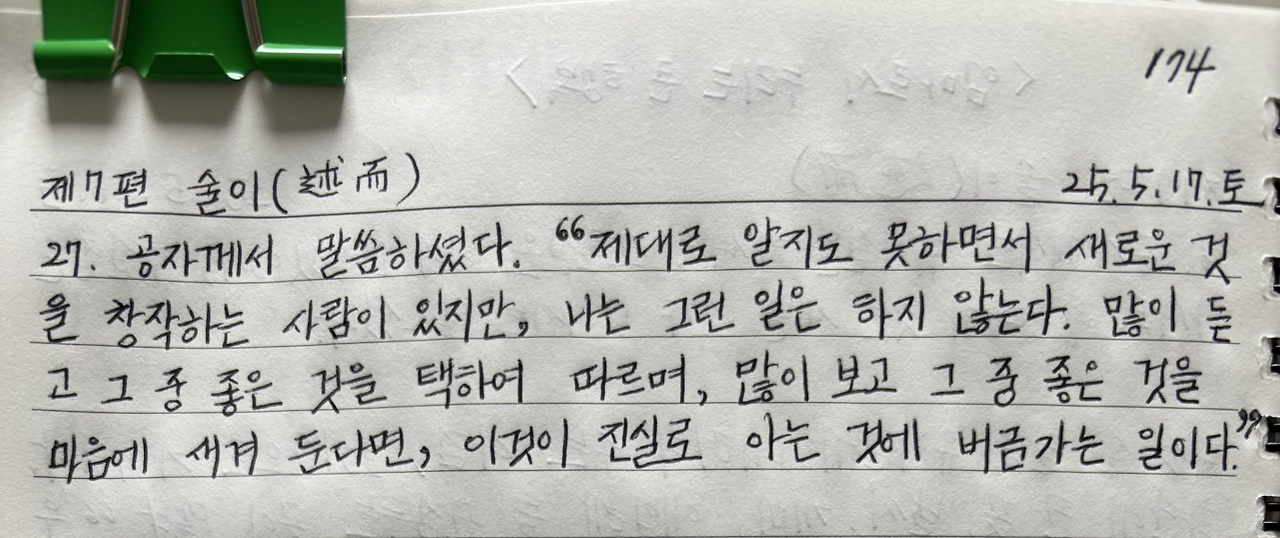 174
제7편 술이(述而)
25.5.17.토
27. 공자께서 말씀하셨다. “제대로 알지도 못하면서 새로운 것
을 창작하는 사람이 있지만, 나는 그런 일은 하지 않는다. 많이 듣
고 그 중 좋은 것을 택하여 따르며, 많이 보고 그 중 좋은 것을
마음에 새겨 둔다면, 이것이 진실로 아는 것에 버금가는 일이다.”